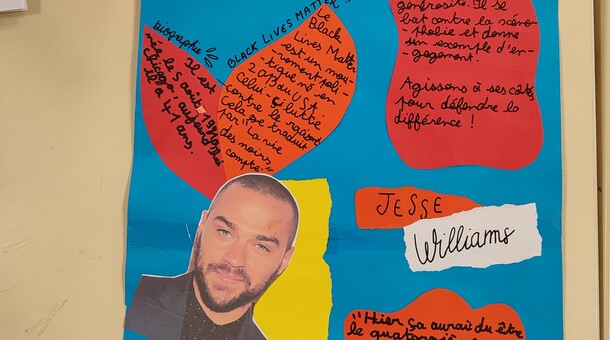 biographie
Il est
né le 5 août 1981 à
Chicago. Aujourd'hui
il a 41 ans.
BLACK LIVES MATTER !!
Le
Black
Lives Matter
est un mou-
vement poli-
tique né en
2013 au USA.
Celui-çi lutte
contre le racisme
Cela se traduit
par "La vie
des noirs
compte."
générosité. Il se
bat contre la xéno-
phobie et donne
un exemple d'en-
gagement.
Agissons à ses côtés
pour défendre la
différence !
JESSE
Williams
"Hier ça aurait du être
le quatorzième